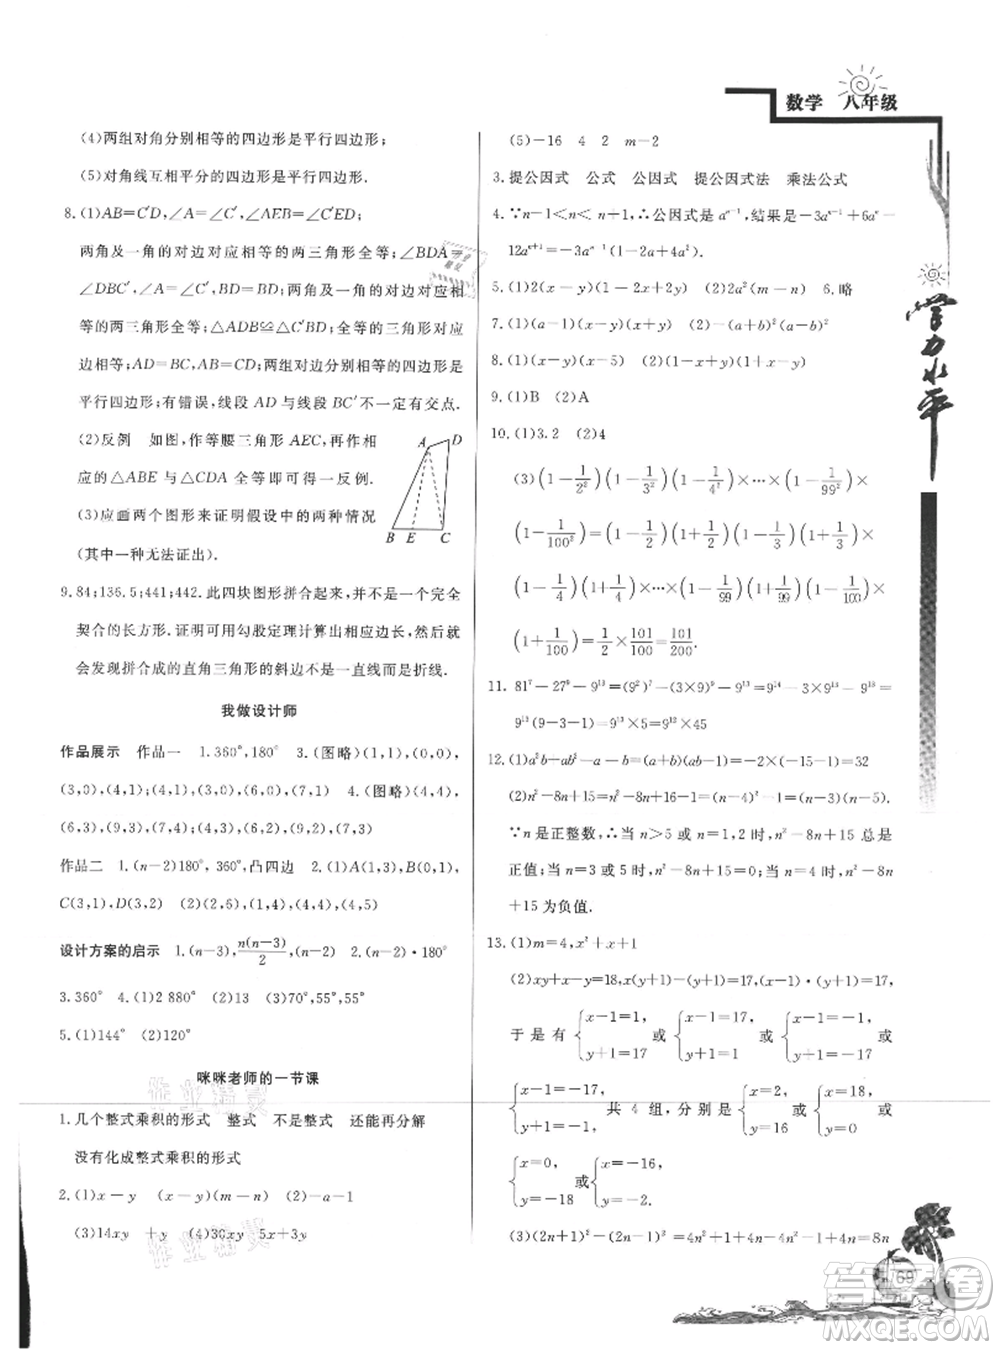 数学 八年级
(4)两组对角分别相等的四边形是平行四边形.
(5)对角线互相平分的四边形是平行四边形.
8.(1)AB=C′D,∠A=∠C′,∠A=∠C′ED;
两角及一角的对边对应相等的两三角形全等;∠BDA=
∠DBC′,∠A=∠C′,BD=DB;两角及一角的对边对应相
等的两三角形全等;△ADB≌△C′BD;全等三角形对应
边相等;AD=BC′;两组对边分别相等的四边形是平行
平行四边形;有错误,线段 AD 与线段 BC′不一定有交点.
(2)反例 如图,作等腰三角形 AEC,再作相
应的△ABE 与△CDA 全等即可得一反例.
(3)应画两个图形来证明假设中的两种情况
(其中一种无法证出).
A D
B E C
9.84;136.5;441;442.此四块图形拼合起来,是一个不完全
契合的长方形.证明可用勾股定理计算出相应边长,然后就
会发现拼合成的直角三角形的斜边不是一直线而是折线.
我做设计师
作品展示 作品一 1.360°,180° 3.(图略)(1,1),(0,0),
(3,0),(4,1);(6,0),(7,1) 4.(图略)(4,4),
(6,3),(9,3),(7,4);(4,3),(6,2),(9,2),(7,3)
作品二 1.(n-2)180°,360°,凸四边 2.(1)A(1,3),B(0,1),
C(3,1),D(3,2) (2)(2,6),(1,2),(6,2),(4,5)
设计方案的启示 1.(n-3),n(n-3)/2,(n-2) 2.(n-2)·180°
3.360° 4.(1)2 880° (2)13 (3)70°,55°,55°
5.(1)144° (2)120°
咪咪老师的一节课
1.几个整式乘积的形式 整式 不是整式 还能再分解
没有化成整式乘积的形式
2.(1)x-y (x-y) (m-n) (2)-a-1
(3)14xy x+y (4)30xy 5x+3y
(5)-16 4 2 m-2
3.提公因式 公式 公因式 提公因式法 乘法公式
4.∵n-1<n<n+1,∴公因式是aⁿ⁻¹,结果是-3aⁿ⁻¹+6aⁿ-
12aⁿ⁺¹=-3aⁿ⁻¹(1-2a+4a²).
5.(1)2(x-y)(x+y) (2)2a²(a-2) 6.略
7.(1)(a-1)(x-y)(x+y) (2)-(a+b)(a+2b)
8.(1)(x-y)(x-5) (2)(1-x+y)(1+x-y)
9.(1)B (2)A
10.(1)3.2 (2)4
(3)(1-1/2²)×(1-1/3²)×(1-1/4²)×⋯×(1-1/99²)×
(1-1/100²)=(1-1/2)(1+1/2)×(1-1/3)(1+1/3)×
(1-1/4)(1+1/4)×⋯×(1-1/99)(1+1/99)×(1-1/100)×
(1+1/100)=1/2×101/100=101/200.
11. 81⁷-27⁹-9¹³=(9²)⁷-(3×9)⁹-9¹³=9¹⁴-3×9¹³-9¹³=
9¹³(9-3-1)=9¹³×5=9¹²×45
12.(1)a²b-ab²-a-b=(a-b)(ab-1)=32
(2)n²-8n+15=n²-8n+16-1=(n-4)²-1=(n-3)(n-5).
∵n是正整数;∴当 n>5 或 n=1,2 时,n²-8n+15 总是
正值;当 n=3 或 5 时,n²-8n+15=0;当 n=4 时,n²-8n
+15 为负值.
13.(1)m=4,x²+x+1
(2)xy+x-y=18,xy+x-y-1=17,(x-1)·(y+1)=17,
于是有{x-1=1,y+1=17 或{x-1=17,y+1=1 或{x-1=-1,y+1=-17 或
{x-1=-17,y+1=-1 共 4 组,分别是{x=2,y=16 或{x=18,y=0 或
{x=0,y=-18 或{x=-16,y=-2.
(3)(2n+1)²-(2n-1)²=4n²+4n+1-4n²+4n-1=8n
学力水平
69
答案卷
MXQE.COM